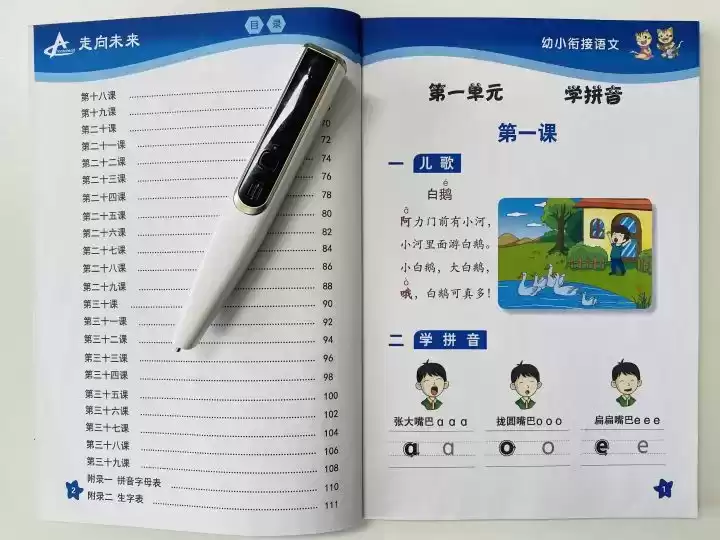 走向未来
目 录
第十八课
第十九课
第二十课 70
第二十一课 72
第二十二课 74
第二十三课 76
第二十四课 78
第二十五课 80
第二十六课 82
第二十七课 84
第二十八课 86
第二十九课 88
第三十课 90
第三十一课 92
第三十二课 94
第三十三课 96
第三十四课 98
第三十五课 100
第三十六课 102
第三十七课 104
第三十八课 106
第三十九课 108
附录一 拼音字母表 110
附录二 生字表 111
2
幼小衔接语文
第一单元 学拼音
第一课
一 儿歌
é
白鹅
ā
阿力门前有小河，
小河里面游白鹅。
小白鹅，大白鹅，
ò
哦，白鹅可真多！
二 学拼音
张大嘴巴 a a a 拢圆嘴巴 o o o 扁扁嘴巴 e e e
a a o o e e
1